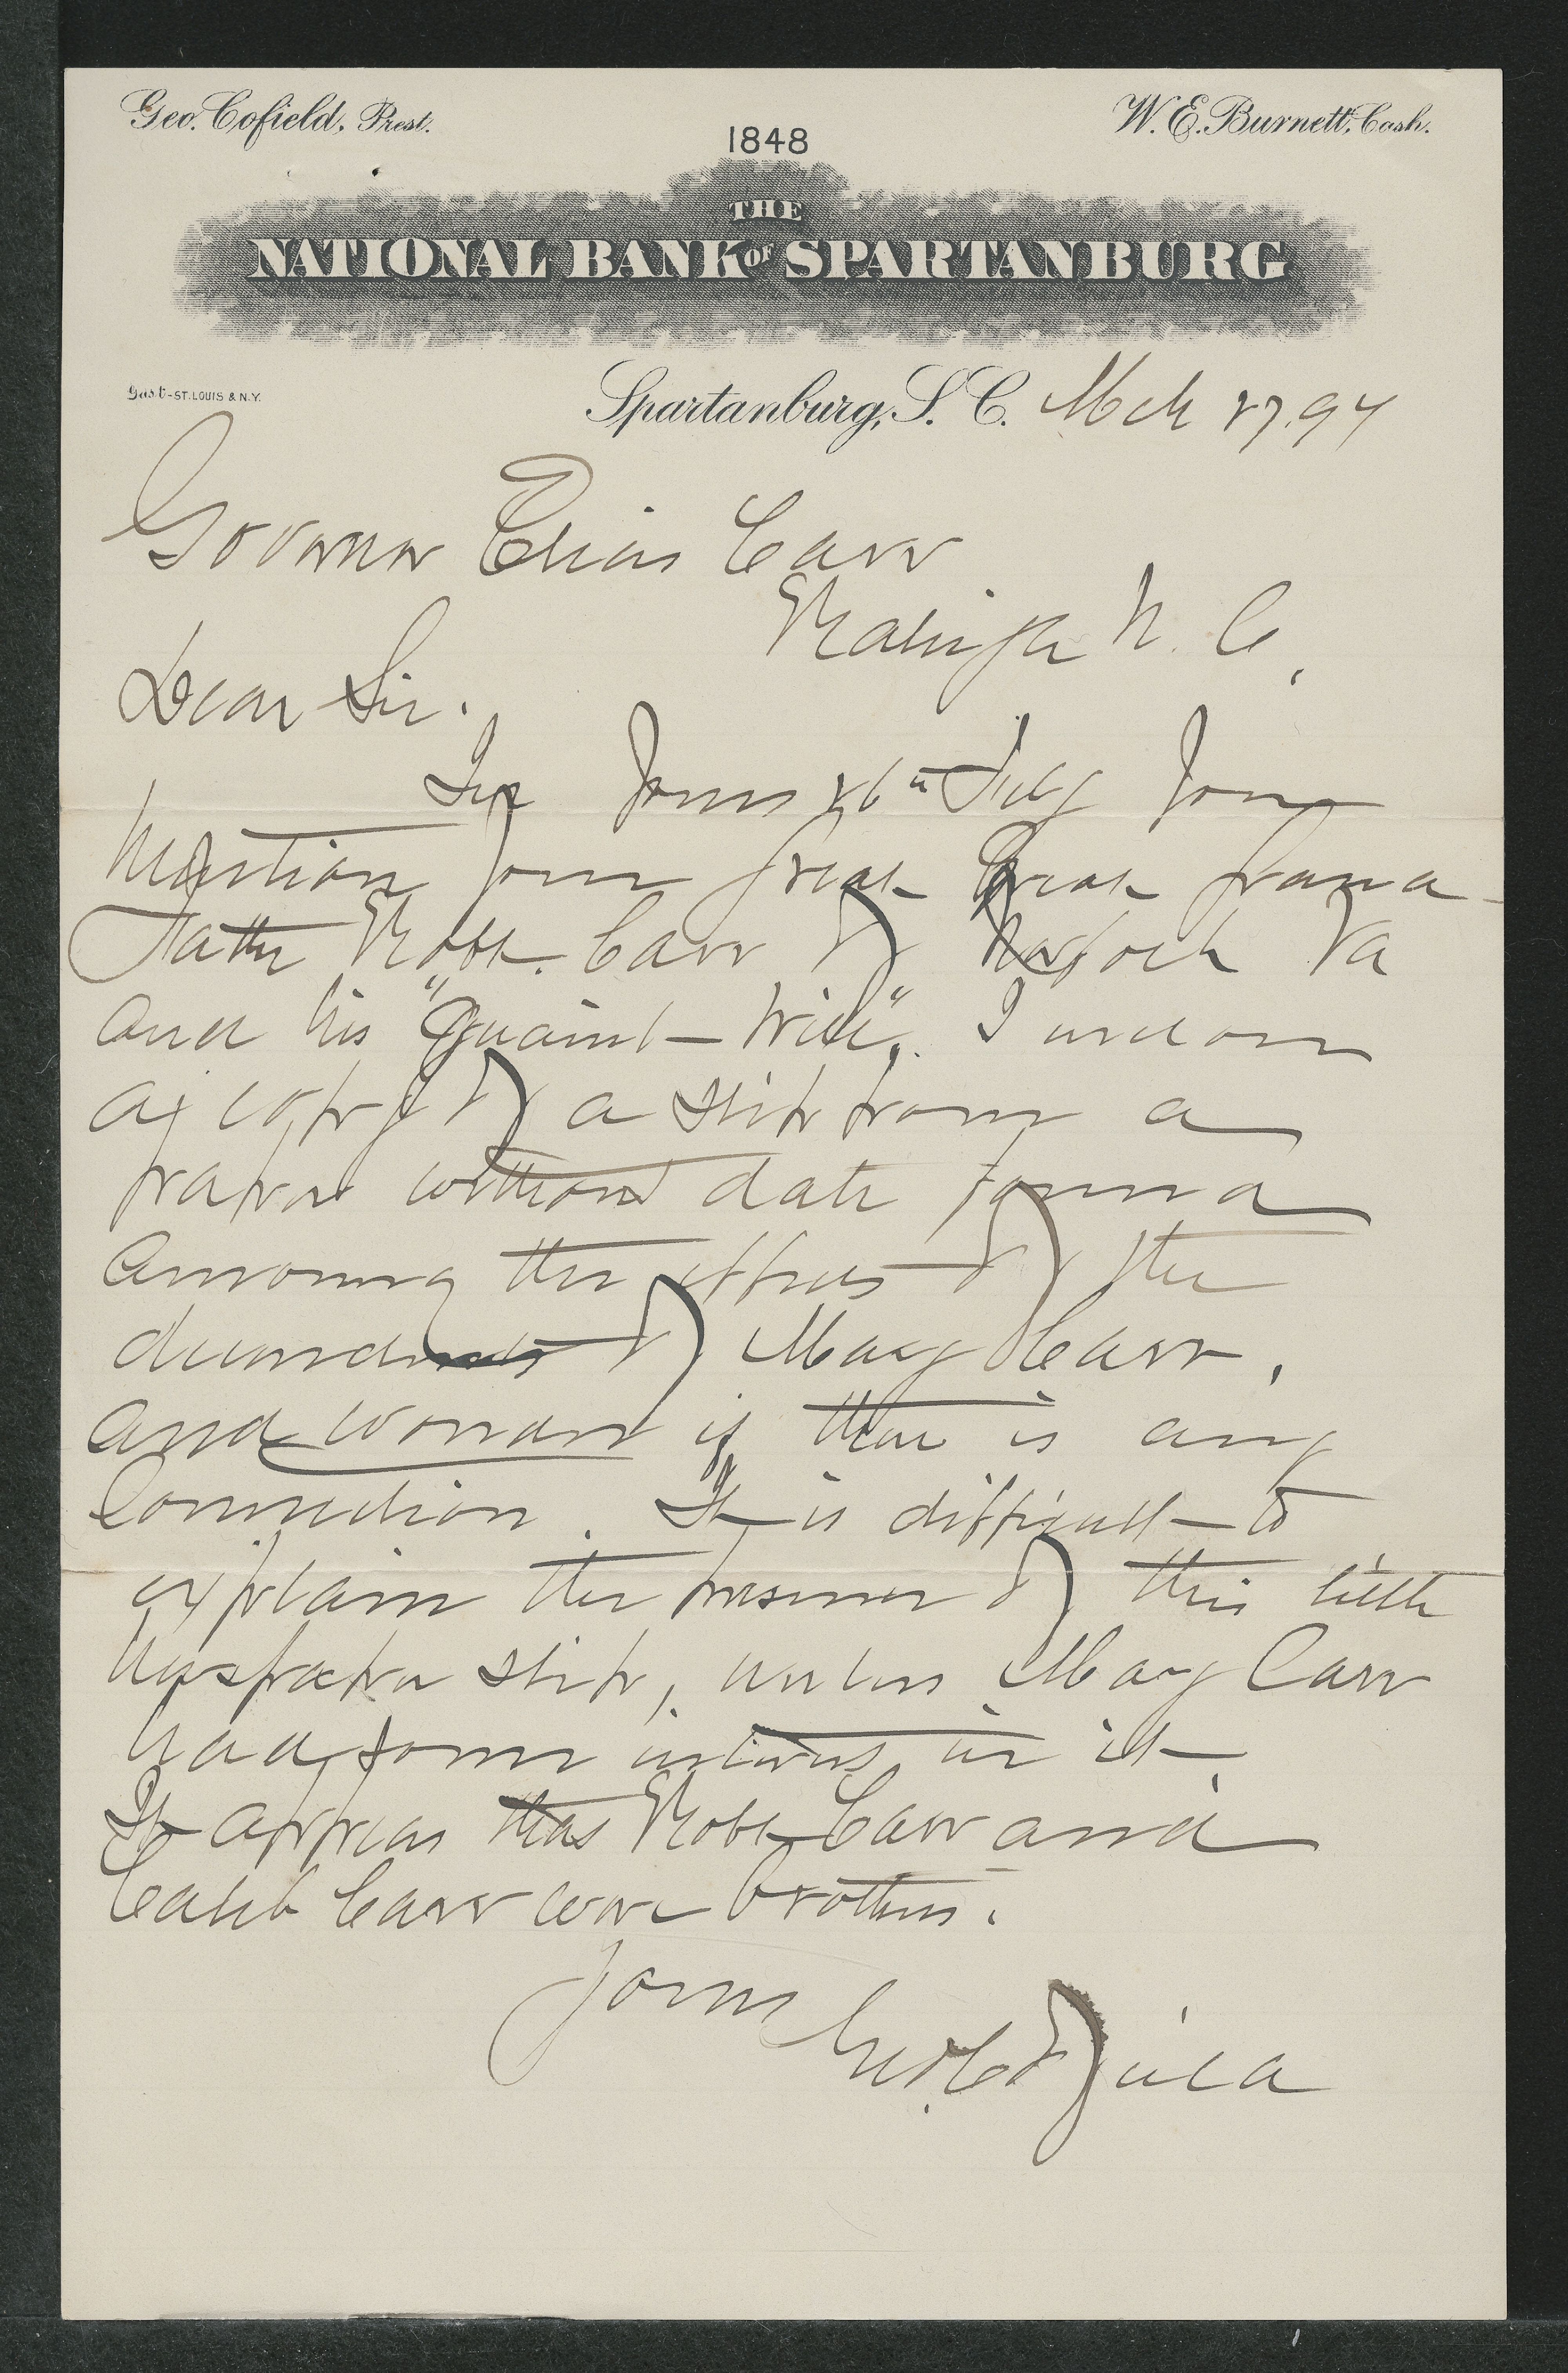 Geo. Cofield, Prest.
W. E. Burnett, Cash.
1848
THE
NATIONAL BANK OF SPARTANBURG
Gast - ST. LOUIS & N.Y.
Spartanburg, S. C. Mch 27. 94
Governor Elias Carr
Raleigh N. C.
Dear Sir.
In Yours 26th July you
Mention your great Great Grand
father Robt. Carr of Norfolk Va
and his "Quaint Will". I enclose
a copy of a slip from a
paper without date found
among the effects of the
decendents of Mary Carr,
and wonder if there is any
Connection. It is difficult to
explain the presence of this little
Newspaper slip, unless Mary Carr
had some interest in it.
It appears that Robt Carr and
Caleb Carr were brothers.
Yours
Geo. Cofield